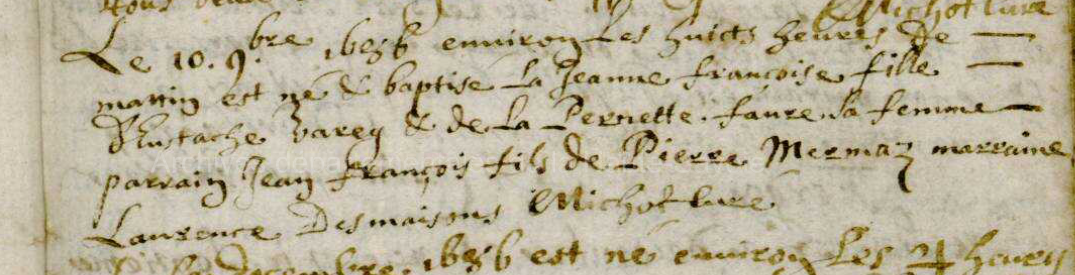 Michot Curé
Le 10. 9.bre 1636 environ Les huicts heures de
mattin est né & baptisé La Jeanne françoise fille
d'Eustache Varey & de La Pernette faure sa femme
parrain Jean François fils de Pierre Mermaz marraine
Laurence Desmaisons Michot Curé
decembre 1636 est né environ Les 4 heures